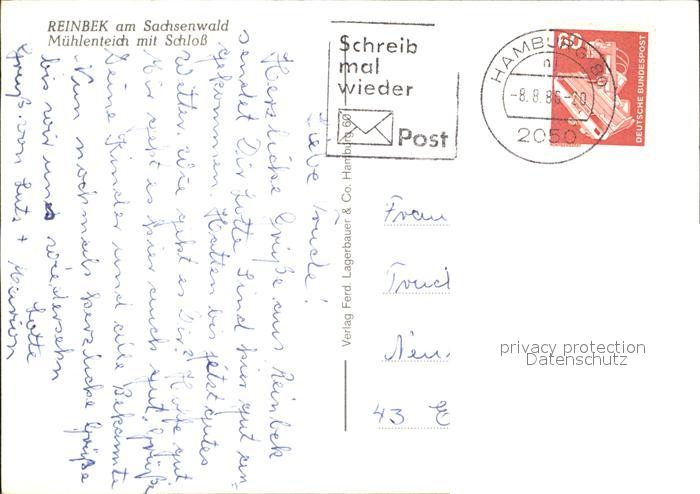 REINBEK am Sachsenwald
Mühlenteich mit Schloß
Schreib
mal
wieder
Post
HAMBURG 80
nj
-8.8.86-20
2050
60
DEUTSCHE BUNDESPOST
Verlag Ferd. Lagerbauer & Co. Hamburg 60
Liebe Trude!
Herzliche Grüße aus Reinbek
sendet Dir Lotte Sind hier gut an-
gekommen Hatten bis jetzt gutes
Wetter. Wie geht es Dir? Hoffe gut
Mir geht es hier auch gut. Grüße
Deine Kinder und alle Bekannte
Nun nochmals herzliche Grüße
bis wir uns wiedersehn
Lotte
Gruß von Lutz + Marion
Frau
Trud
Neu
43 E
privacy protection
Datenschutz